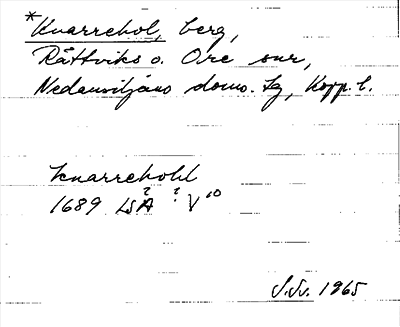 *Knarrehol, berg,
Rättviks o. Ore snr,
Nedansiljans doms. tg, Kopp. l.
Knarrehohl
1689 LSA ? ? V 10
1965